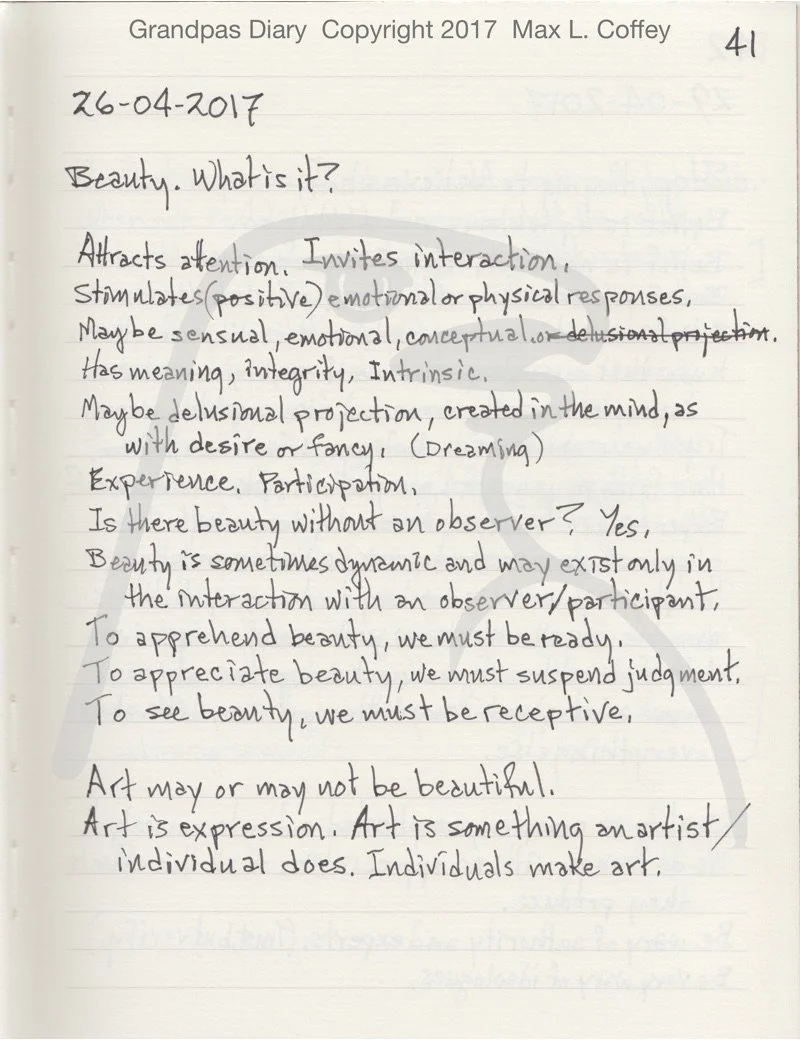 Grandpas Diary Copyright 2017 Max L. Coffey
41
26-04-2017
Beauty. What is it?
Attracts attention. Invites interaction.
Stimulates (positive) emotional or physical responses.
Maybe sensual, emotional, conceptual. or delusional projection.
Has meaning, integrity, Intrinsic.
Maybe delusional projection, created in the mind, as
with desire or fancy. (Dreaming)
Experience. Participation.
Is there beauty without an observer? Yes.
Beauty is sometimes dynamic and may exist only in
the interaction with an observer/participant.
To apprehend beauty, we must be ready.
To appreciate beauty, we must suspend judgment.
To see beauty, we must be receptive.
Art may or may not be beautiful.
Art is expression. Art is something an artist/
individual does. Individuals make art.